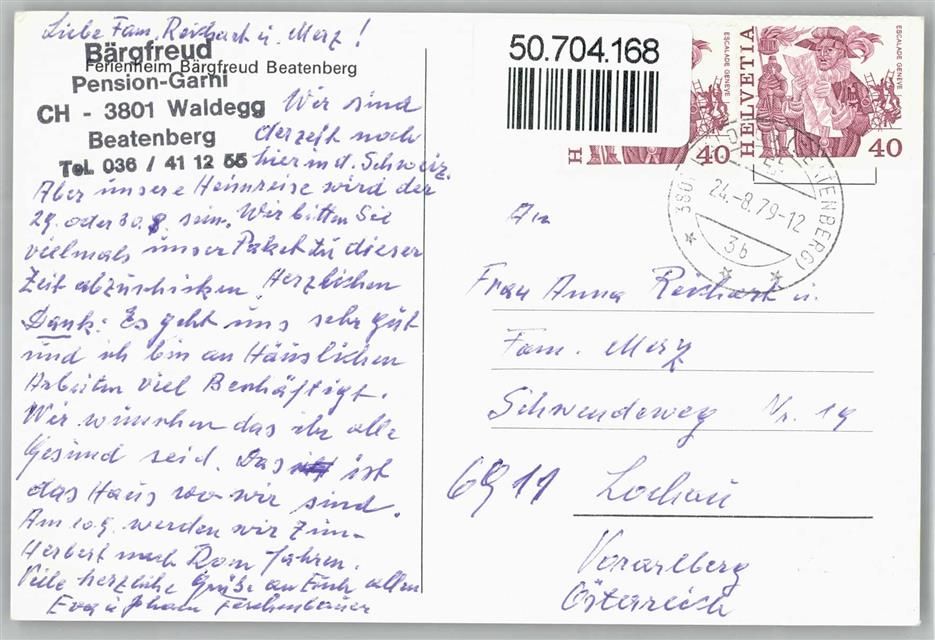 Liebe Fam. Reichart u. Merz!
Bärgfreud
Ferienheim Bärgfreud Beatenberg
Pension-Garni
CH - 3801 Waldegg
Beatenberg
Tel. 036 / 41 12 55
Wir sind
derzeit noch
hier in d. Schweiz.
Aber unsere Heimreise wird der
29. oder 30.8. sein. Wir bitten Sie
vielmals unser Paket zu dieser
Zeit abzuschicken. Herzlichen
Dank: Es geht uns sehr gut
und ich bin an Häuslichen
Arbeiten viel Beschäftigt.
Wir wünschen das ihr alle
Gesund seid. Das ist
das Haus wo wir sind.
Am 10.9. werden wir zum
Herbert nach Rom fahren.
Viele herzliche Grüße an Euch allen
Eva u Johann
50.704.168
HELVETIA
ESCALADE GENÈVE
40
H
ESCALADE GENÈVE
40
3801
(BEATENBERG)
24.-8.79-12
3b
An
Frau Anna Reichart u.
Fam. Merz
Schwendeweg Nr. 19
6911 Lochau
Vorarlberg
Österreich